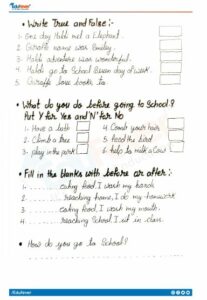 Edufever
• Write True and False :-
1. One day Habib met a Elephant.
2. Giraffe name was Smiley.
3. Habib adventure was wonderful.
4. Habib go to School Seven day of week.
5. Giraffe love books to.
• What do you do before going to School?
Put Y for Yes and 'N' for No
1. Have a bath
2. Climb a tree
3. play in the park
4. Comb your hair
5. feed the bird
6. help to milk a Cow
• Fill in the blanks with before or after :-
1. ....... eating food, I wash my hand.
2. ....... reaching home, I do my homework
3. ....... eating food, I wash my mouth.
4. ....... reaching School, I sit in class.
• How do you go to School?
/Edufever